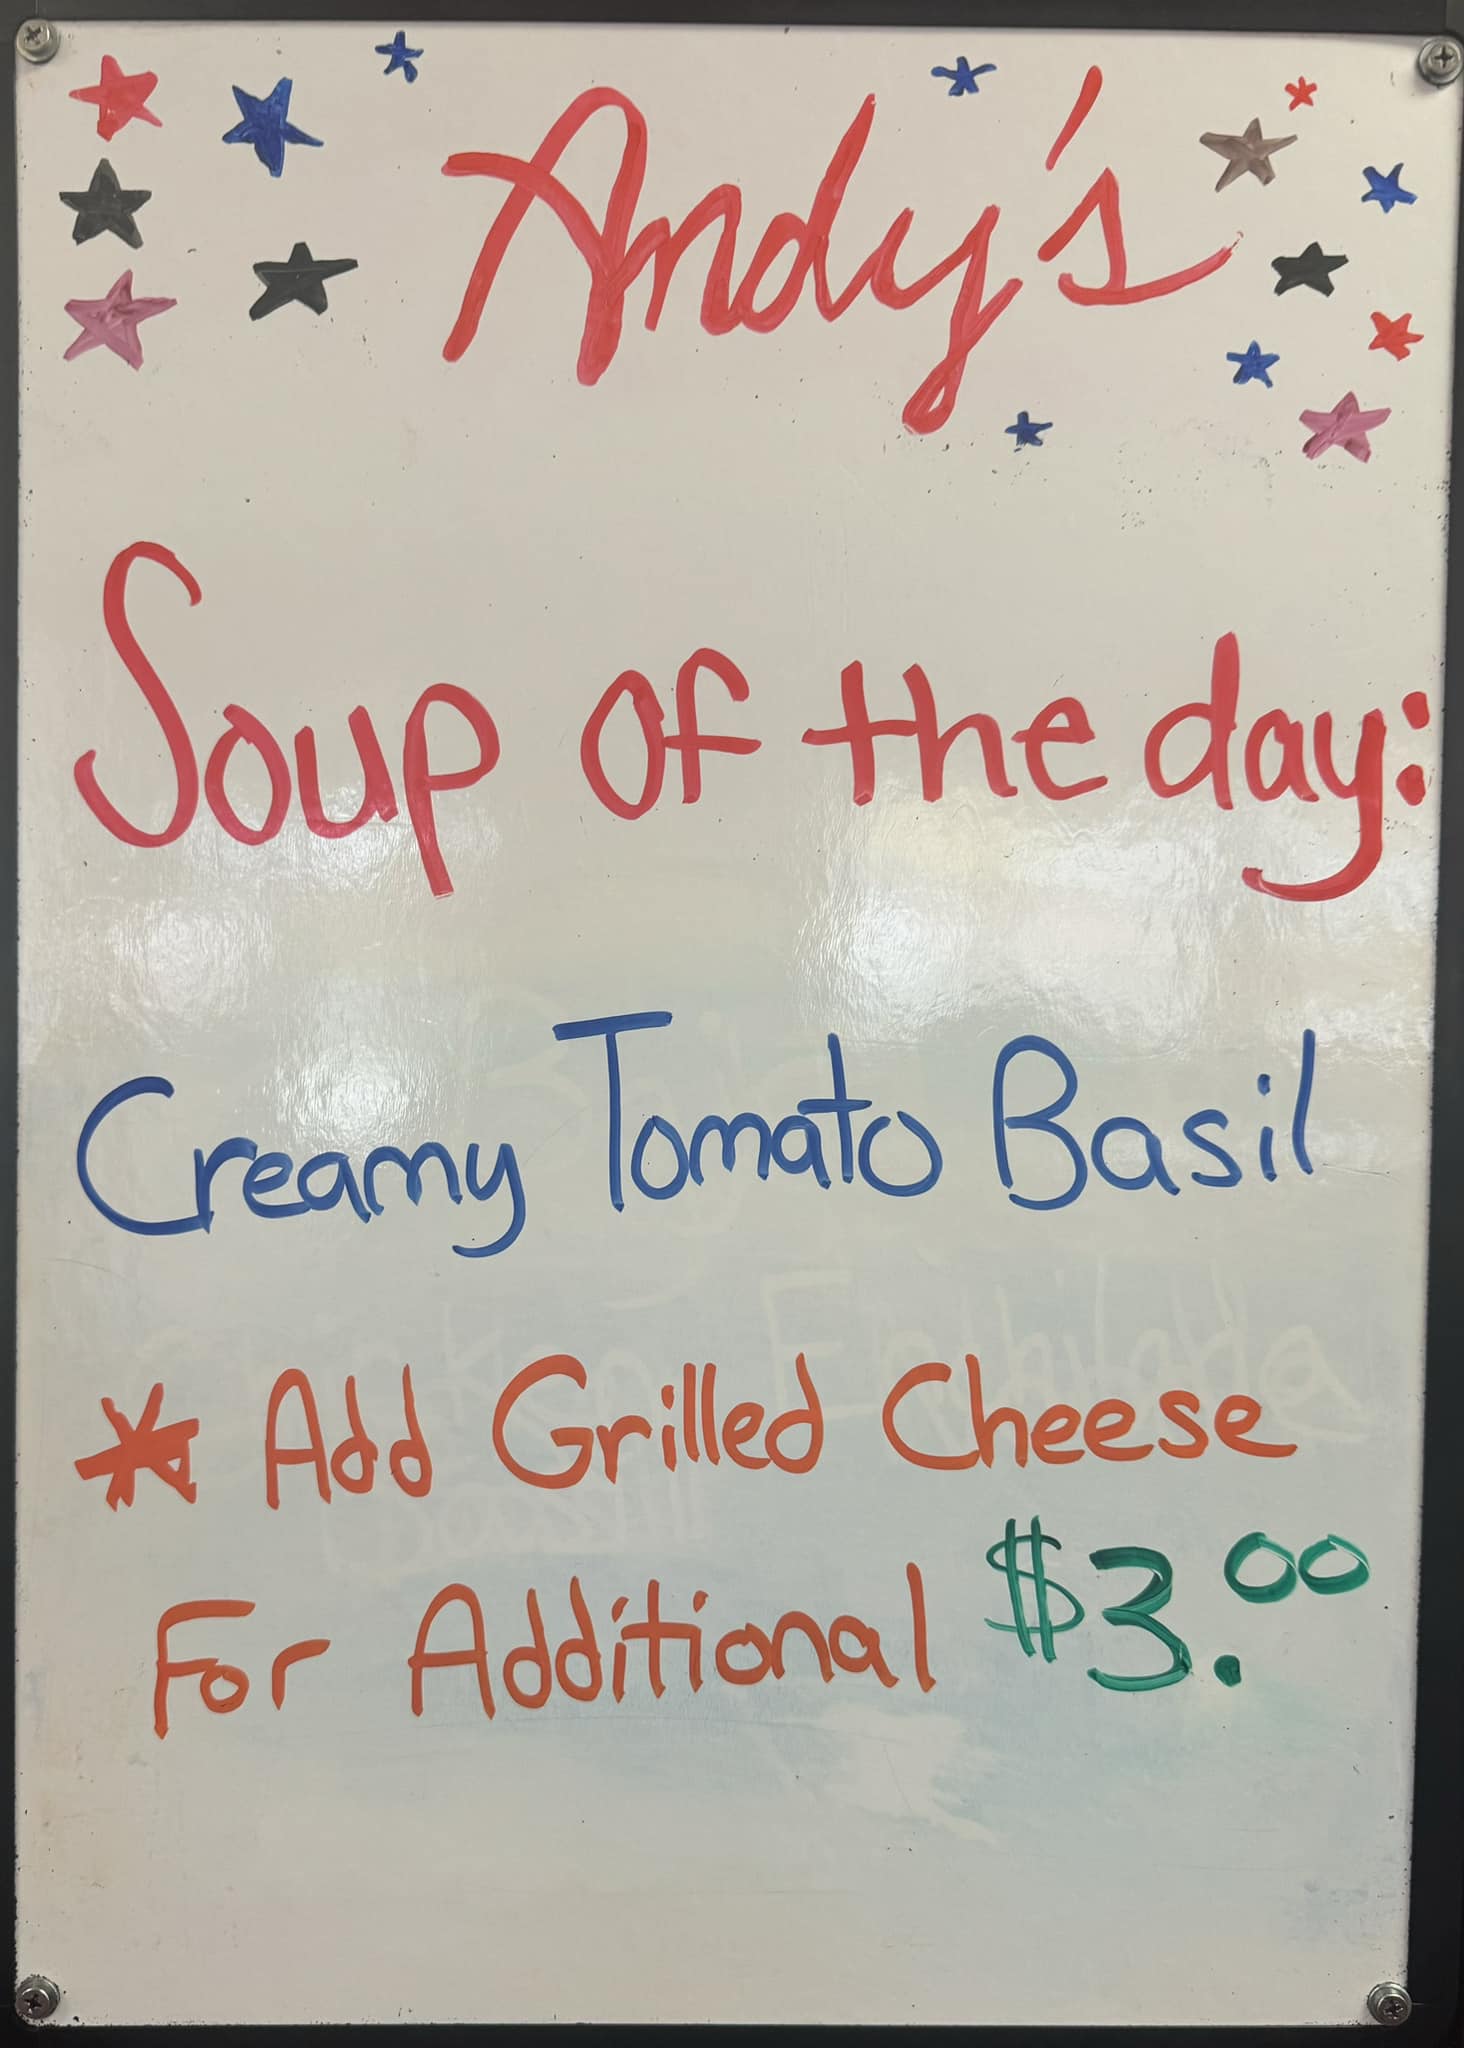 Andy's
Soup of the day:
Creamy Tomato Basil
* Add Grilled Cheese
For Additional $3.00